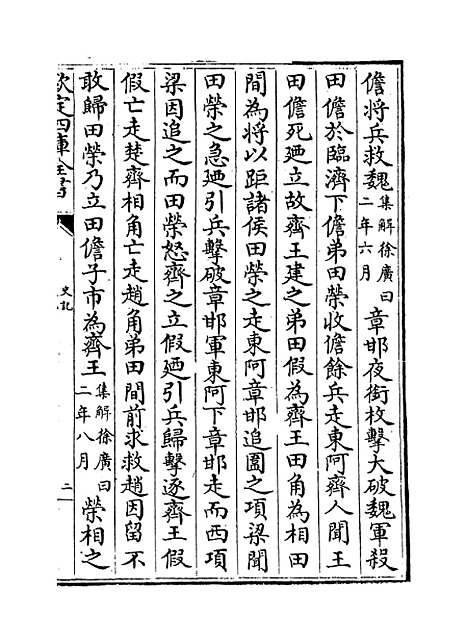 儋将兵救魏集解徐廣曰二年六月章邯夜銜枚擊大破魏軍殺
田儋於臨濟下儋弟田榮收儋餘兵走東阿齊人聞王
田儋死廼立故齊王建之弟田假為齊王田角為相田
間為將以距諸侯田榮之走東阿章邯追圍之項梁聞
田榮之急廼引兵擊破章邯軍東阿下章邯走而西項
梁因追之而田榮怒齊之立假廼引兵歸擊逐齊王假
假亡走楚齊相角亡走趙角弟田間前求救趙因留不
敢歸田榮乃立田儋子市為齊王集解徐廣曰二年八月榮相之
欽定四庫全書
史記
二